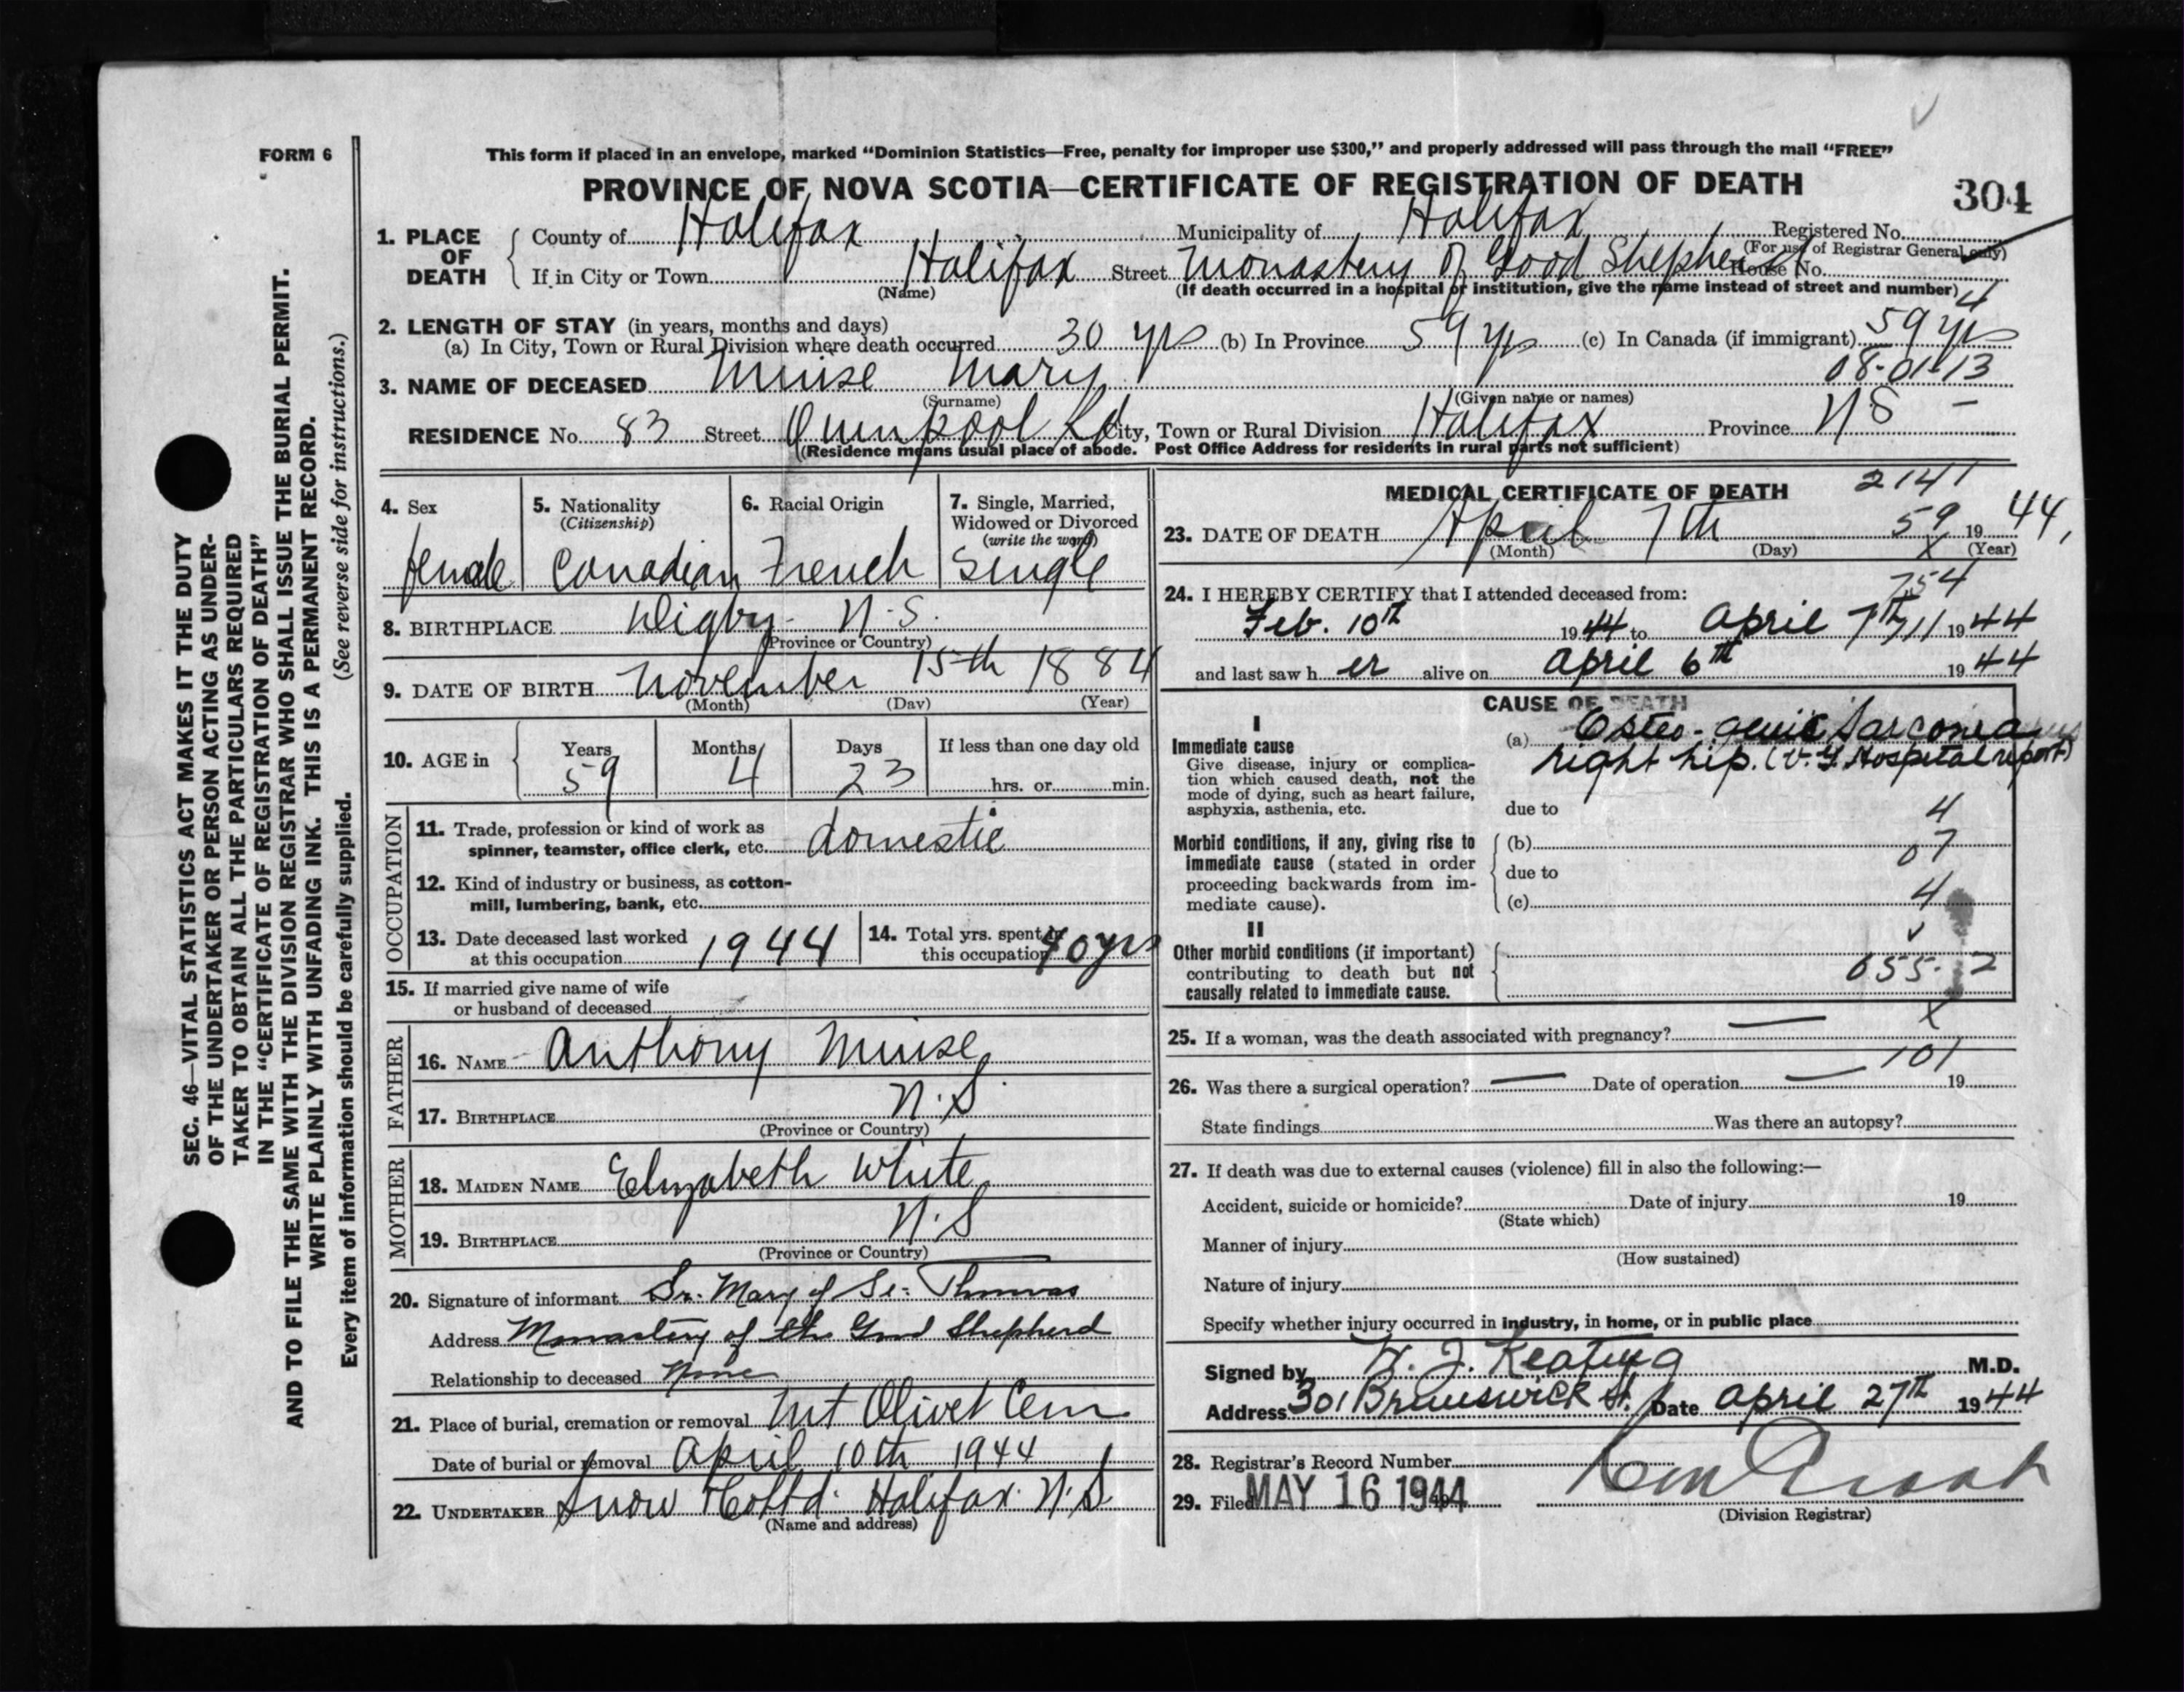 FORM 6
This form if placed in an envelope, marked “Dominion Statistics—Free, penalty for improper use $300,” and properly addressed will pass through the mail “FREE”
PROVINCE OF NOVA SCOTIA—CERTIFICATE OF REGISTRATION OF DEATH
304
1. PLACE OF DEATH
County of Halifax Municipality of Halifax Registered No.
(For use of Registrar General only)
If in City or Town Halifax Street Monastery of Good Shepherd House No.
(Name) (If death occurred in a hospital or institution, give the name instead of street and number)
4
2. LENGTH OF STAY (in years, months and days)
(a) In City, Town or Rural Division where death occurred 30 yrs (b) In Province 59 yrs (c) In Canada (if immigrant) 59 yrs
08-01-13
3. NAME OF DECEASED Muise Mary
(Surname) (Given name or names)
RESIDENCE No. 83 Street Quinpool Rd City, Town or Rural Division Halifax Province N S —
(Residence means usual place of abode. Post Office Address for residents in rural parts not sufficient)
4. Sex female
5. Nationality (Citizenship) Canadian
6. Racial Origin French
7. Single, Married, Widowed or Divorced (write the word) Single
8. BIRTHPLACE Digby N.S.
(Province or Country)
9. DATE OF BIRTH November 15th 1884
(Month) (Day) (Year)
10. AGE in Years 59 Months 4 Days 23 If less than one day old
hrs. or min.
OCCUPATION
11. Trade, profession or kind of work as
spinner, teamster, office clerk, etc. domestic
12. Kind of industry or business, as cotton-
mill, lumbering, bank, etc.
13. Date deceased last worked
at this occupation 1944
14. Total yrs. spent in
this occupation 40 yrs
15. If married give name of wife
or husband of deceased
FATHER
16. NAME Anthony Muise
17. BIRTHPLACE N.S.
(Province or Country)
MOTHER
18. MAIDEN NAME Elizabeth White
19. BIRTHPLACE N.S
(Province or Country)
20. Signature of informant Sr. Mary of St. Thomas
Address Monastery of the Good Shepherd
Relationship to deceased None
21. Place of burial, cremation or removal Mt Olivet Cem
Date of burial or removal April 10th 1944
22. UNDERTAKER Snow & Co Ltd. Halifax N.S
(Name and address)
MEDICAL CERTIFICATE OF DEATH
2141
23. DATE OF DEATH April 7th 59 19 44,
(Month) (Day) X (Year)
754
24. I HEREBY CERTIFY that I attended deceased from:
Feb. 10th 1944 to April 7th 11 1944
and last saw h er alive on April 6th 1944
CAUSE OF DEATH
I
Immediate cause
Give disease, injury or complica-
tion which caused death, not the
mode of dying, such as heart failure,
asphyxia, asthenia, etc.
(a) Osteo-genic Sarcoma
right hip. (V.G. Hospital report)
due to
4
Morbid conditions, if any, giving rise to
immediate cause (stated in order
proceeding backwards from im-
mediate cause).
(b) 07
due to
(c) 4
II
Other morbid conditions (if important)
contributing to death but not
causally related to immediate cause.
055-2
X
25. If a woman, was the death associated with pregnancy? —
101
26. Was there a surgical operation? — Date of operation — 19
State findings Was there an autopsy?
27. If death was due to external causes (violence) fill in also the following:—
Accident, suicide or homicide? Date of injury 19
(State which)
Manner of injury
(How sustained)
Nature of injury
Specify whether injury occurred in industry, in home, or in public place
Signed by W. J. Keating M.D.
Address 301 Brunswick St. Date April 27th 1944
28. Registrar's Record Number
29. Filed MAY 16 1944
(Division Registrar)
SEC. 46—VITAL STATISTICS ACT MAKES IT THE DUTY
OF THE UNDERTAKER OR PERSON ACTING AS UNDER-
TAKER TO OBTAIN ALL THE PARTICULARS REQUIRED
IN THE “CERTIFICATE OF REGISTRATION OF DEATH”
AND TO FILE THE SAME WITH THE DIVISION REGISTRAR WHO SHALL ISSUE THE BURIAL PERMIT.
WRITE PLAINLY WITH UNFADING INK. THIS IS A PERMANENT RECORD.
Every item of information should be carefully supplied. (See reverse side for instructions.)